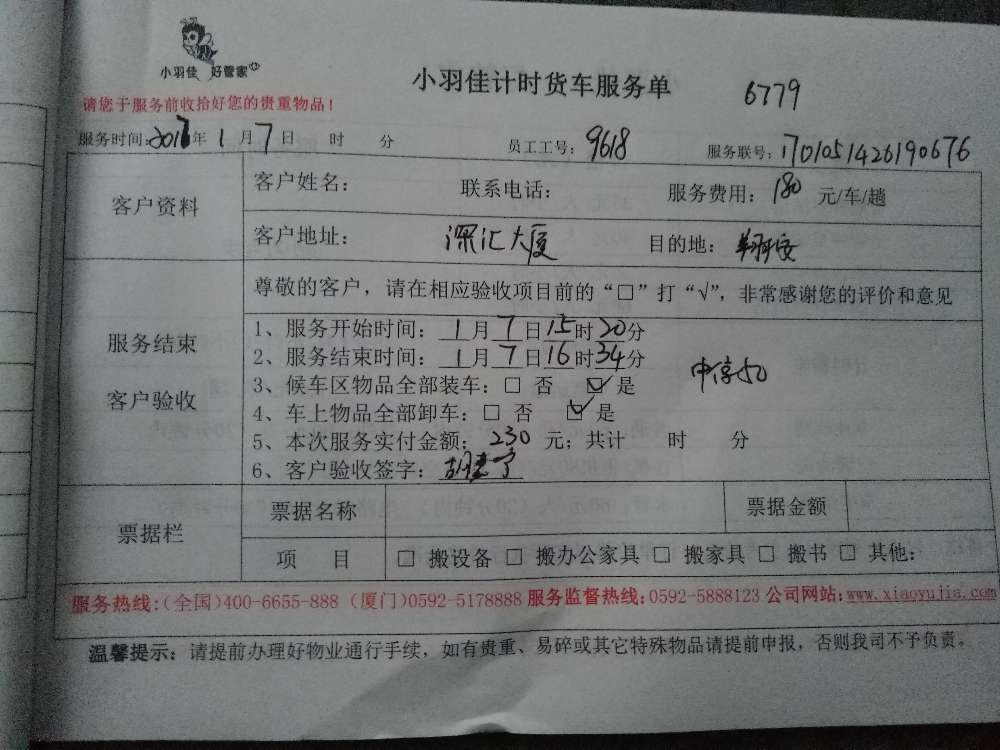 小羽佳 好管家
小羽佳计时货车服务单 6779
请您于服务前收拾好您的贵重物品！
服务时间:2017年1月7日 时 分 员工工号: 9618 服务联号: 1701051426190676
客户资料
客户姓名: 联系电话: 服务费用: 180 元/车/趟
客户地址: 深汇大厦 目的地:
服务结束
客户验收
尊敬的客户，请在相应验收项目前的“□”打“√”，非常感谢您的评价和意见
1、服务开始时间: 1月7日15时20分
2、服务结束时间: 1月7日16时34分
3、候车区物品全部装车: □ 否 ☑ 是 中停50
4、车上物品全部卸车: □ 否 ☑ 是
5、本次服务实付金额: 230 元; 共计 时 分
6、客户验收签字:
票据栏
票据名称 票据金额
项 目 □ 搬设备 □ 搬办公家具 □ 搬家具 □ 搬书 □ 其他:
服务热线:(全国)400-6655-888 (厦门)0592-5178888 服务监督热线:0592-5888123 公司网站:www.xiaoyujia.com
温馨提示: 请提前办理好物业通行手续，如有贵重、易碎或其它特殊物品请提前申报，否则我司不予负责。